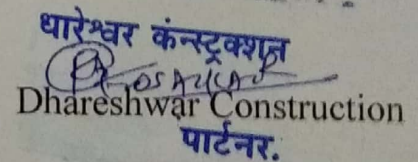 धारेश्वर कंन्स्ट्रक्शन
Dhareshwar Construction
पार्टनर.